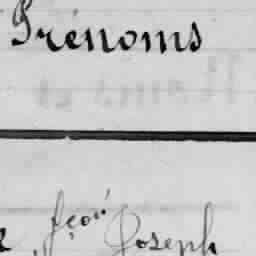 Prénoms
fçois Joseph